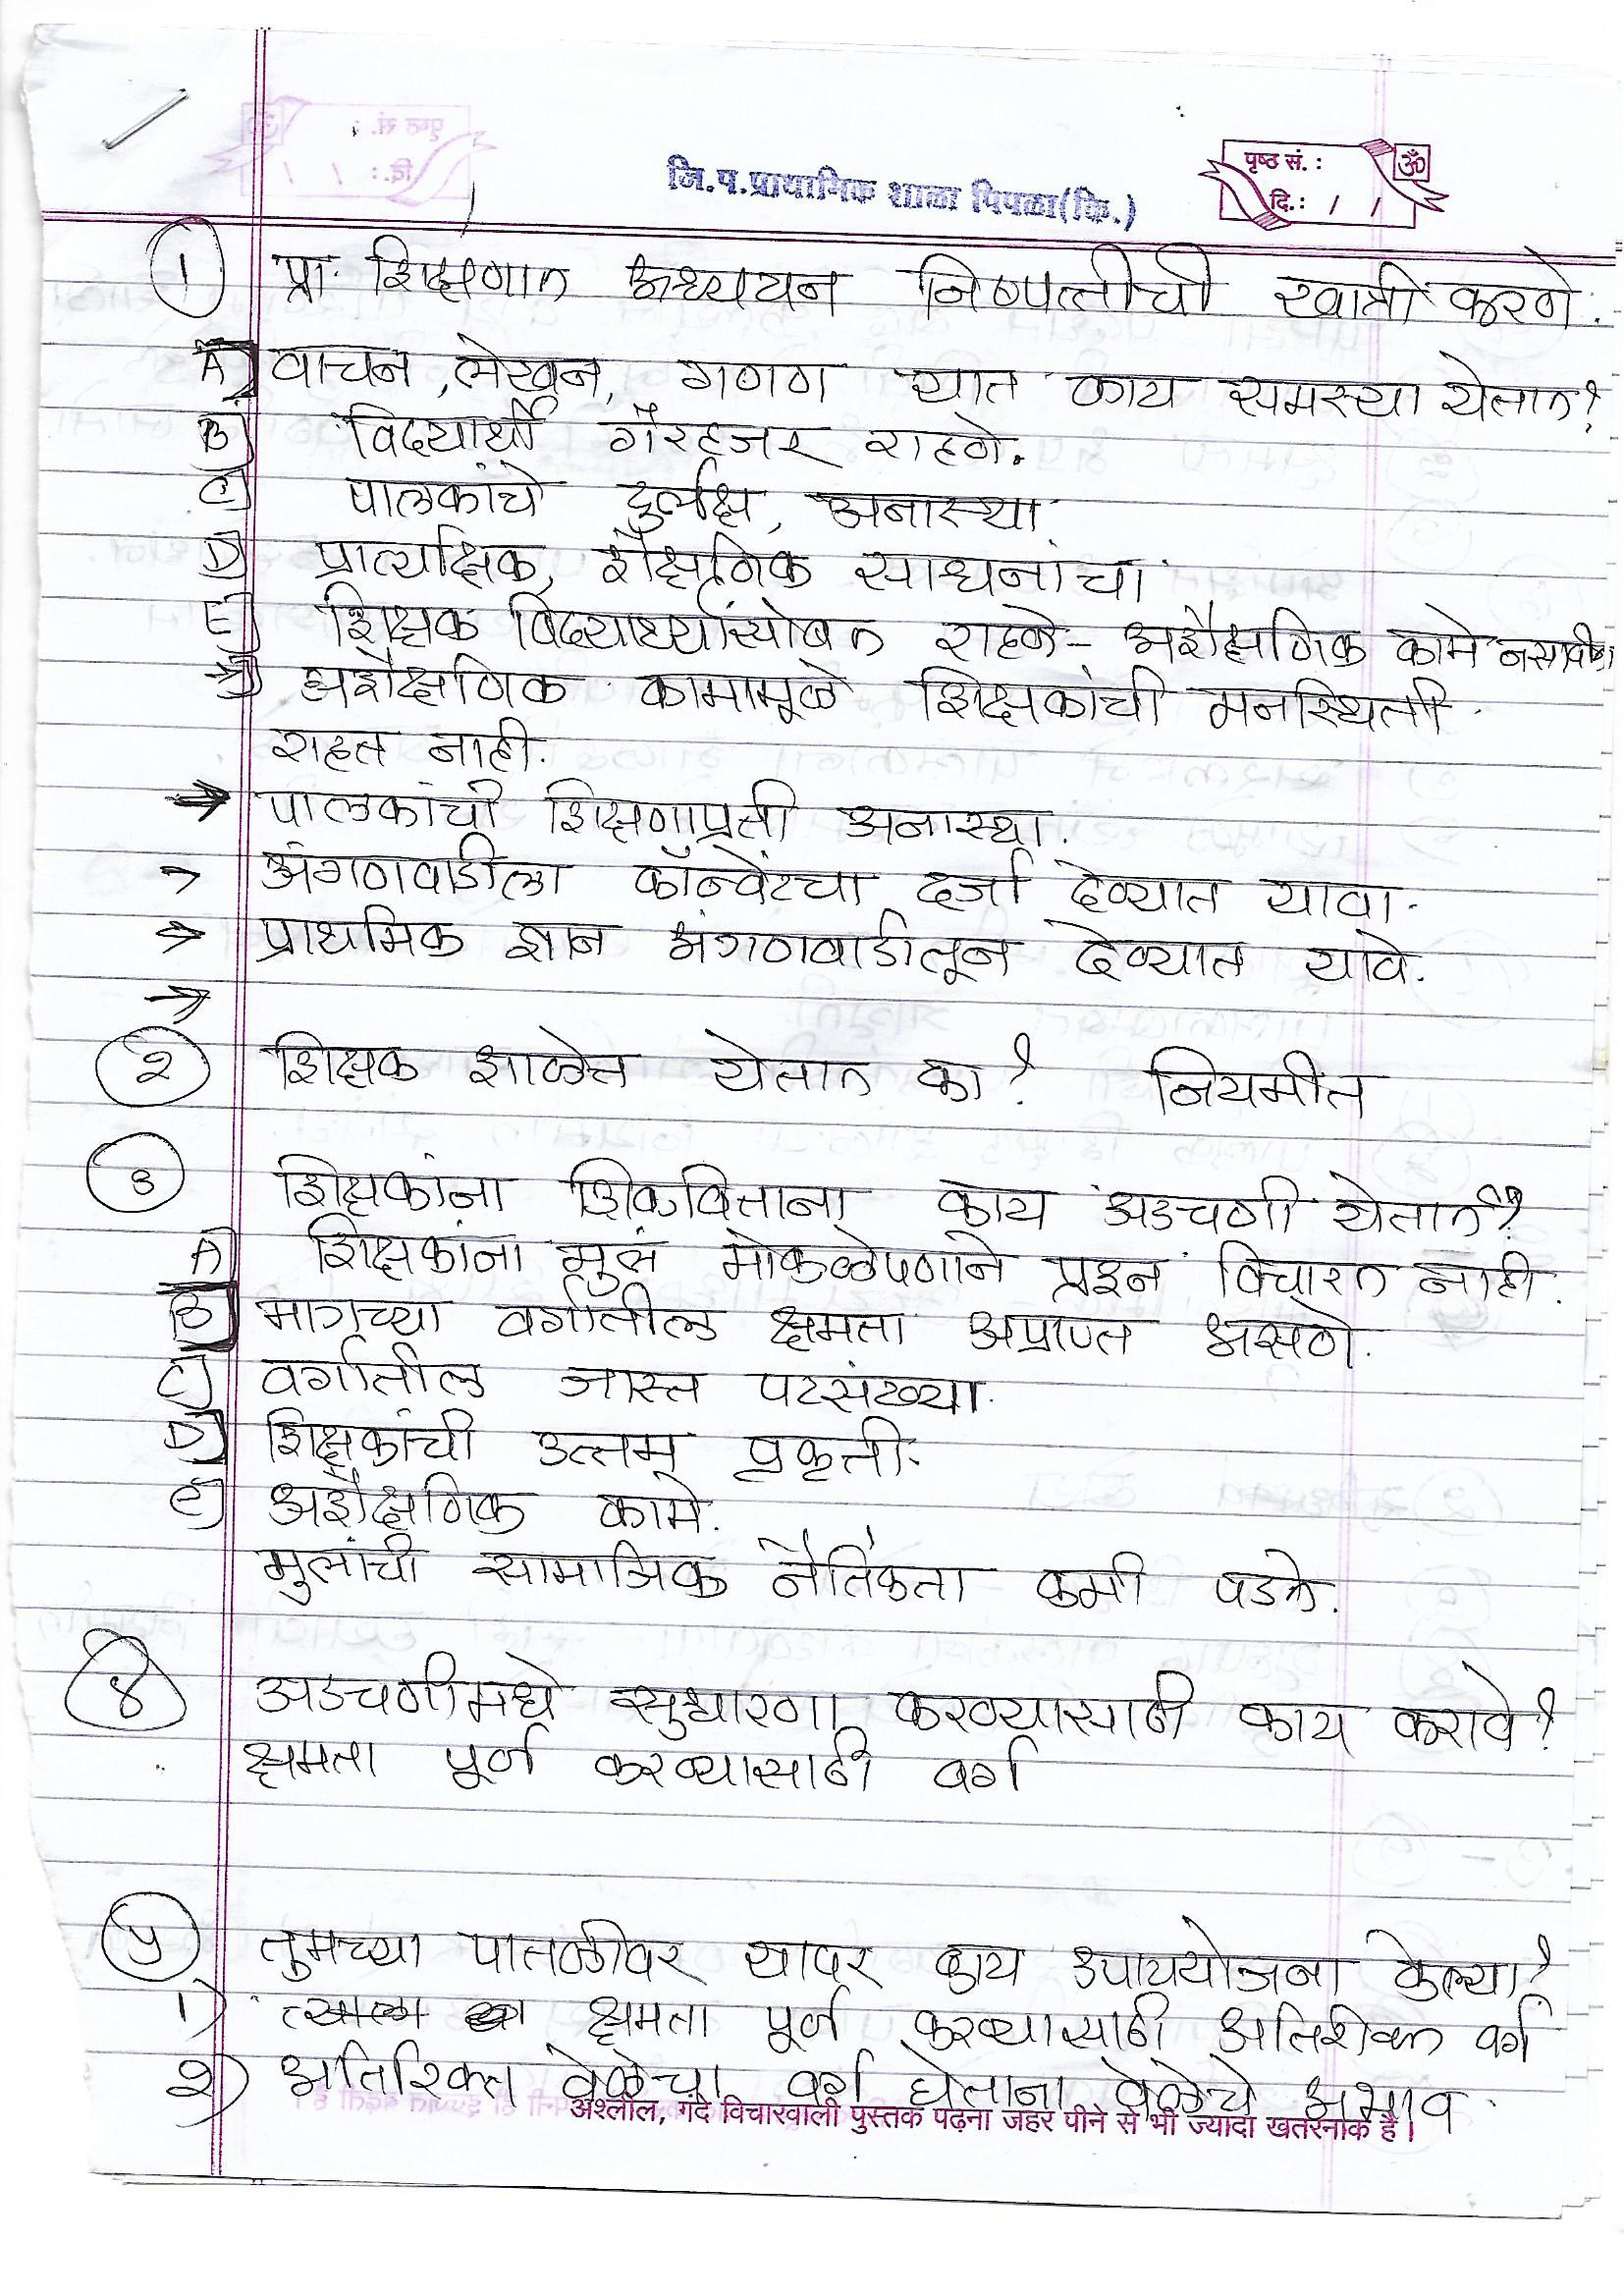 पृष्ठ सं. :
ॐ
दि.: / /
जि.प.प्राथामिक शाळा पिपळा(कि.)
१ प्रा. शिक्षणात अध्ययन निष्पत्तीची खात्री करणे.
A) वाचन, लेखन, गणण यात काय समस्या येतात?
B) विद्यार्थी गैरहजर राहणे.
C) पालकांचे दुर्लक्ष, अनास्था
D) प्रात्यक्षिक, शैक्षणिक साधनांचा
E) शिक्षक विद्यार्थ्यांसोबत राहणे - अशैक्षणिक कामे नसावीत
→ अशैक्षणिक कामामूळे शिक्षकांची मनस्थिती
राहत नाही.
→ पालकांची शिक्षणाप्रती अनास्था.
→ अंगणवाडीला कॉन्वेंटचा दर्जा देण्यात यावा.
→ प्राथमिक ज्ञान अंगणवाडीतून देण्यात यावे.
→
२ शिक्षक शाळेत येतात का? नियमीत
३ शिक्षकांना शिकविताना काय अडचणी येतात?
A) शिक्षकांना मुलं मोकळेपणाने प्रश्न विचारत नाही.
B) मागच्या वर्गातील क्षमता अप्राप्त असणे.
C) वर्गातील जास्त पटसंख्या.
D) शिक्षकांची उत्तम प्रकृती.
e) अशैक्षणिक कामे.
मुलांची सामाजिक नैतिकता कमी पडते.
४ अडचणीमधे सुधारणा करण्यासाठी काय करावे?
क्षमता पूर्ण करण्यासाठी वर्ग
५ तुमच्या पातळीवर यापर काय उपाययोजना केल्या?
१) क्षमता पूर्ण करण्यासाठी अतिरीक्त वर्ग
२) अतिरिक्त वेळेचा वर्ग घेताना वेळेचे अभाव.
अश्लील, गंदे विचारवाली पुस्तक पढ़ना जहर पीने से भी ज्यादा खतरनाक है।